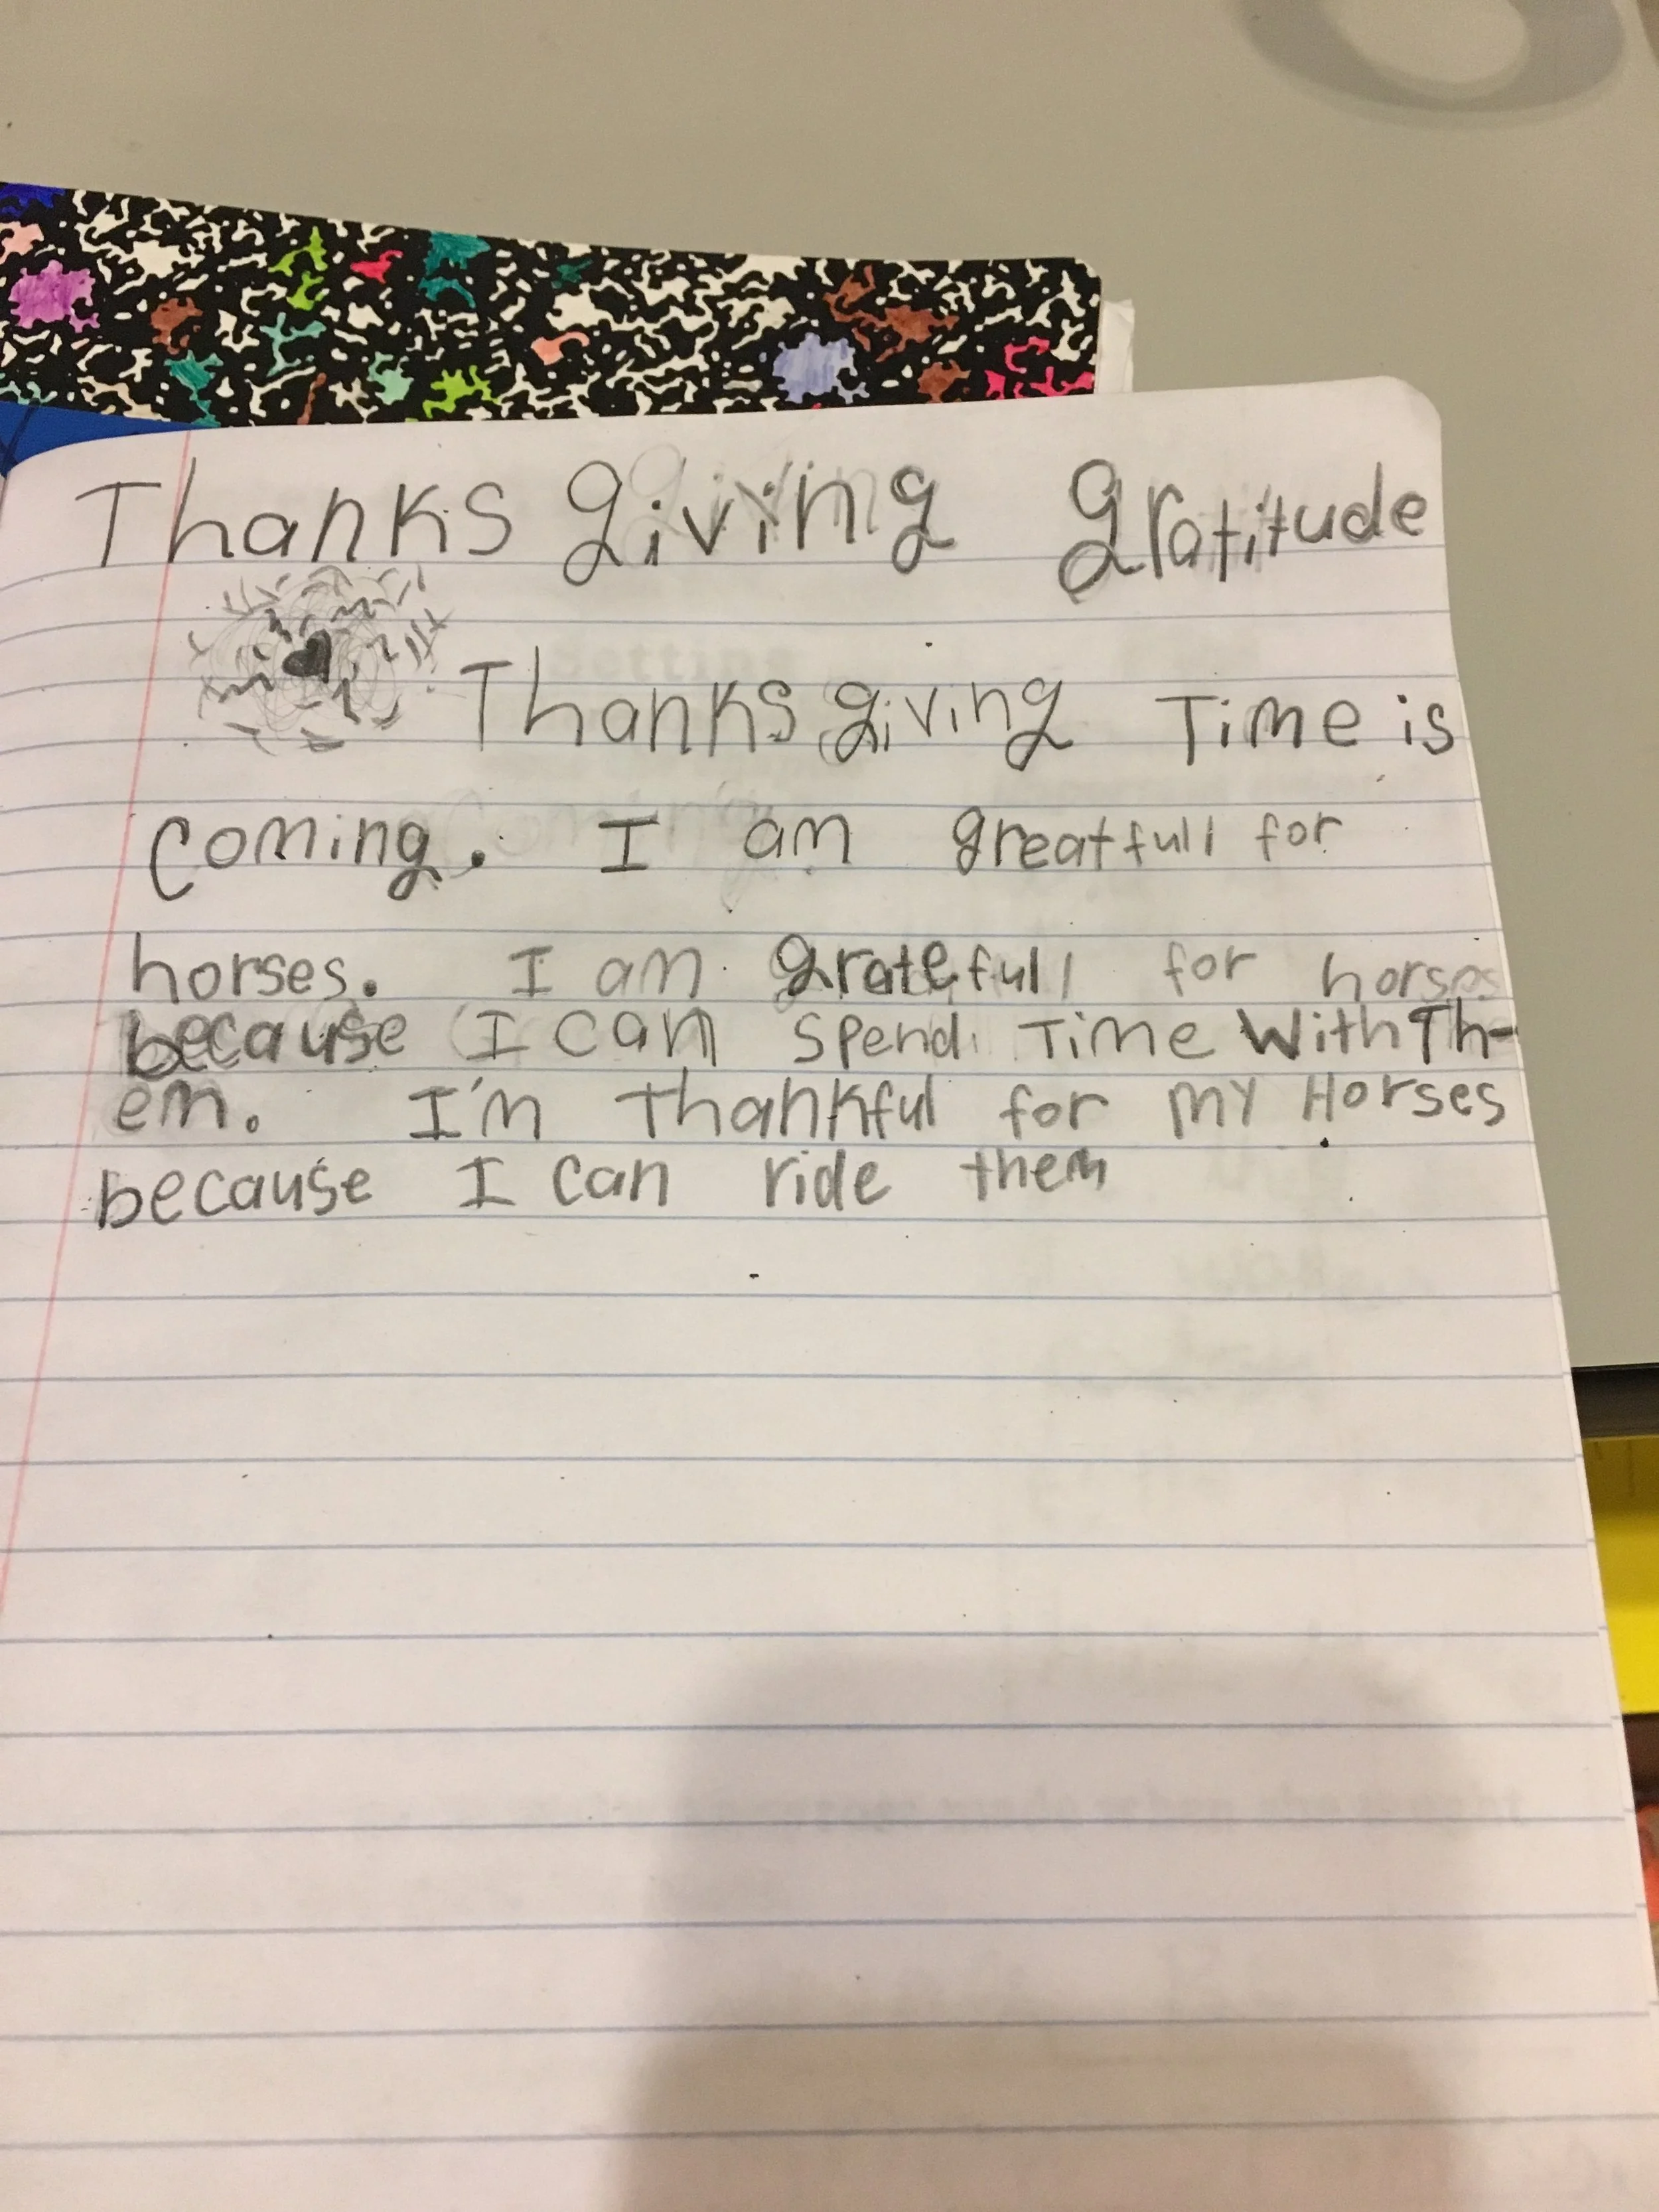 Thanksgiving gratitude
Thanksgiving Time is
Coming. I am greatfull for
horses. I am gratefull for horses
because I can spend Time With Th-
em. I'm Thankful for my Horses
because I can ride them